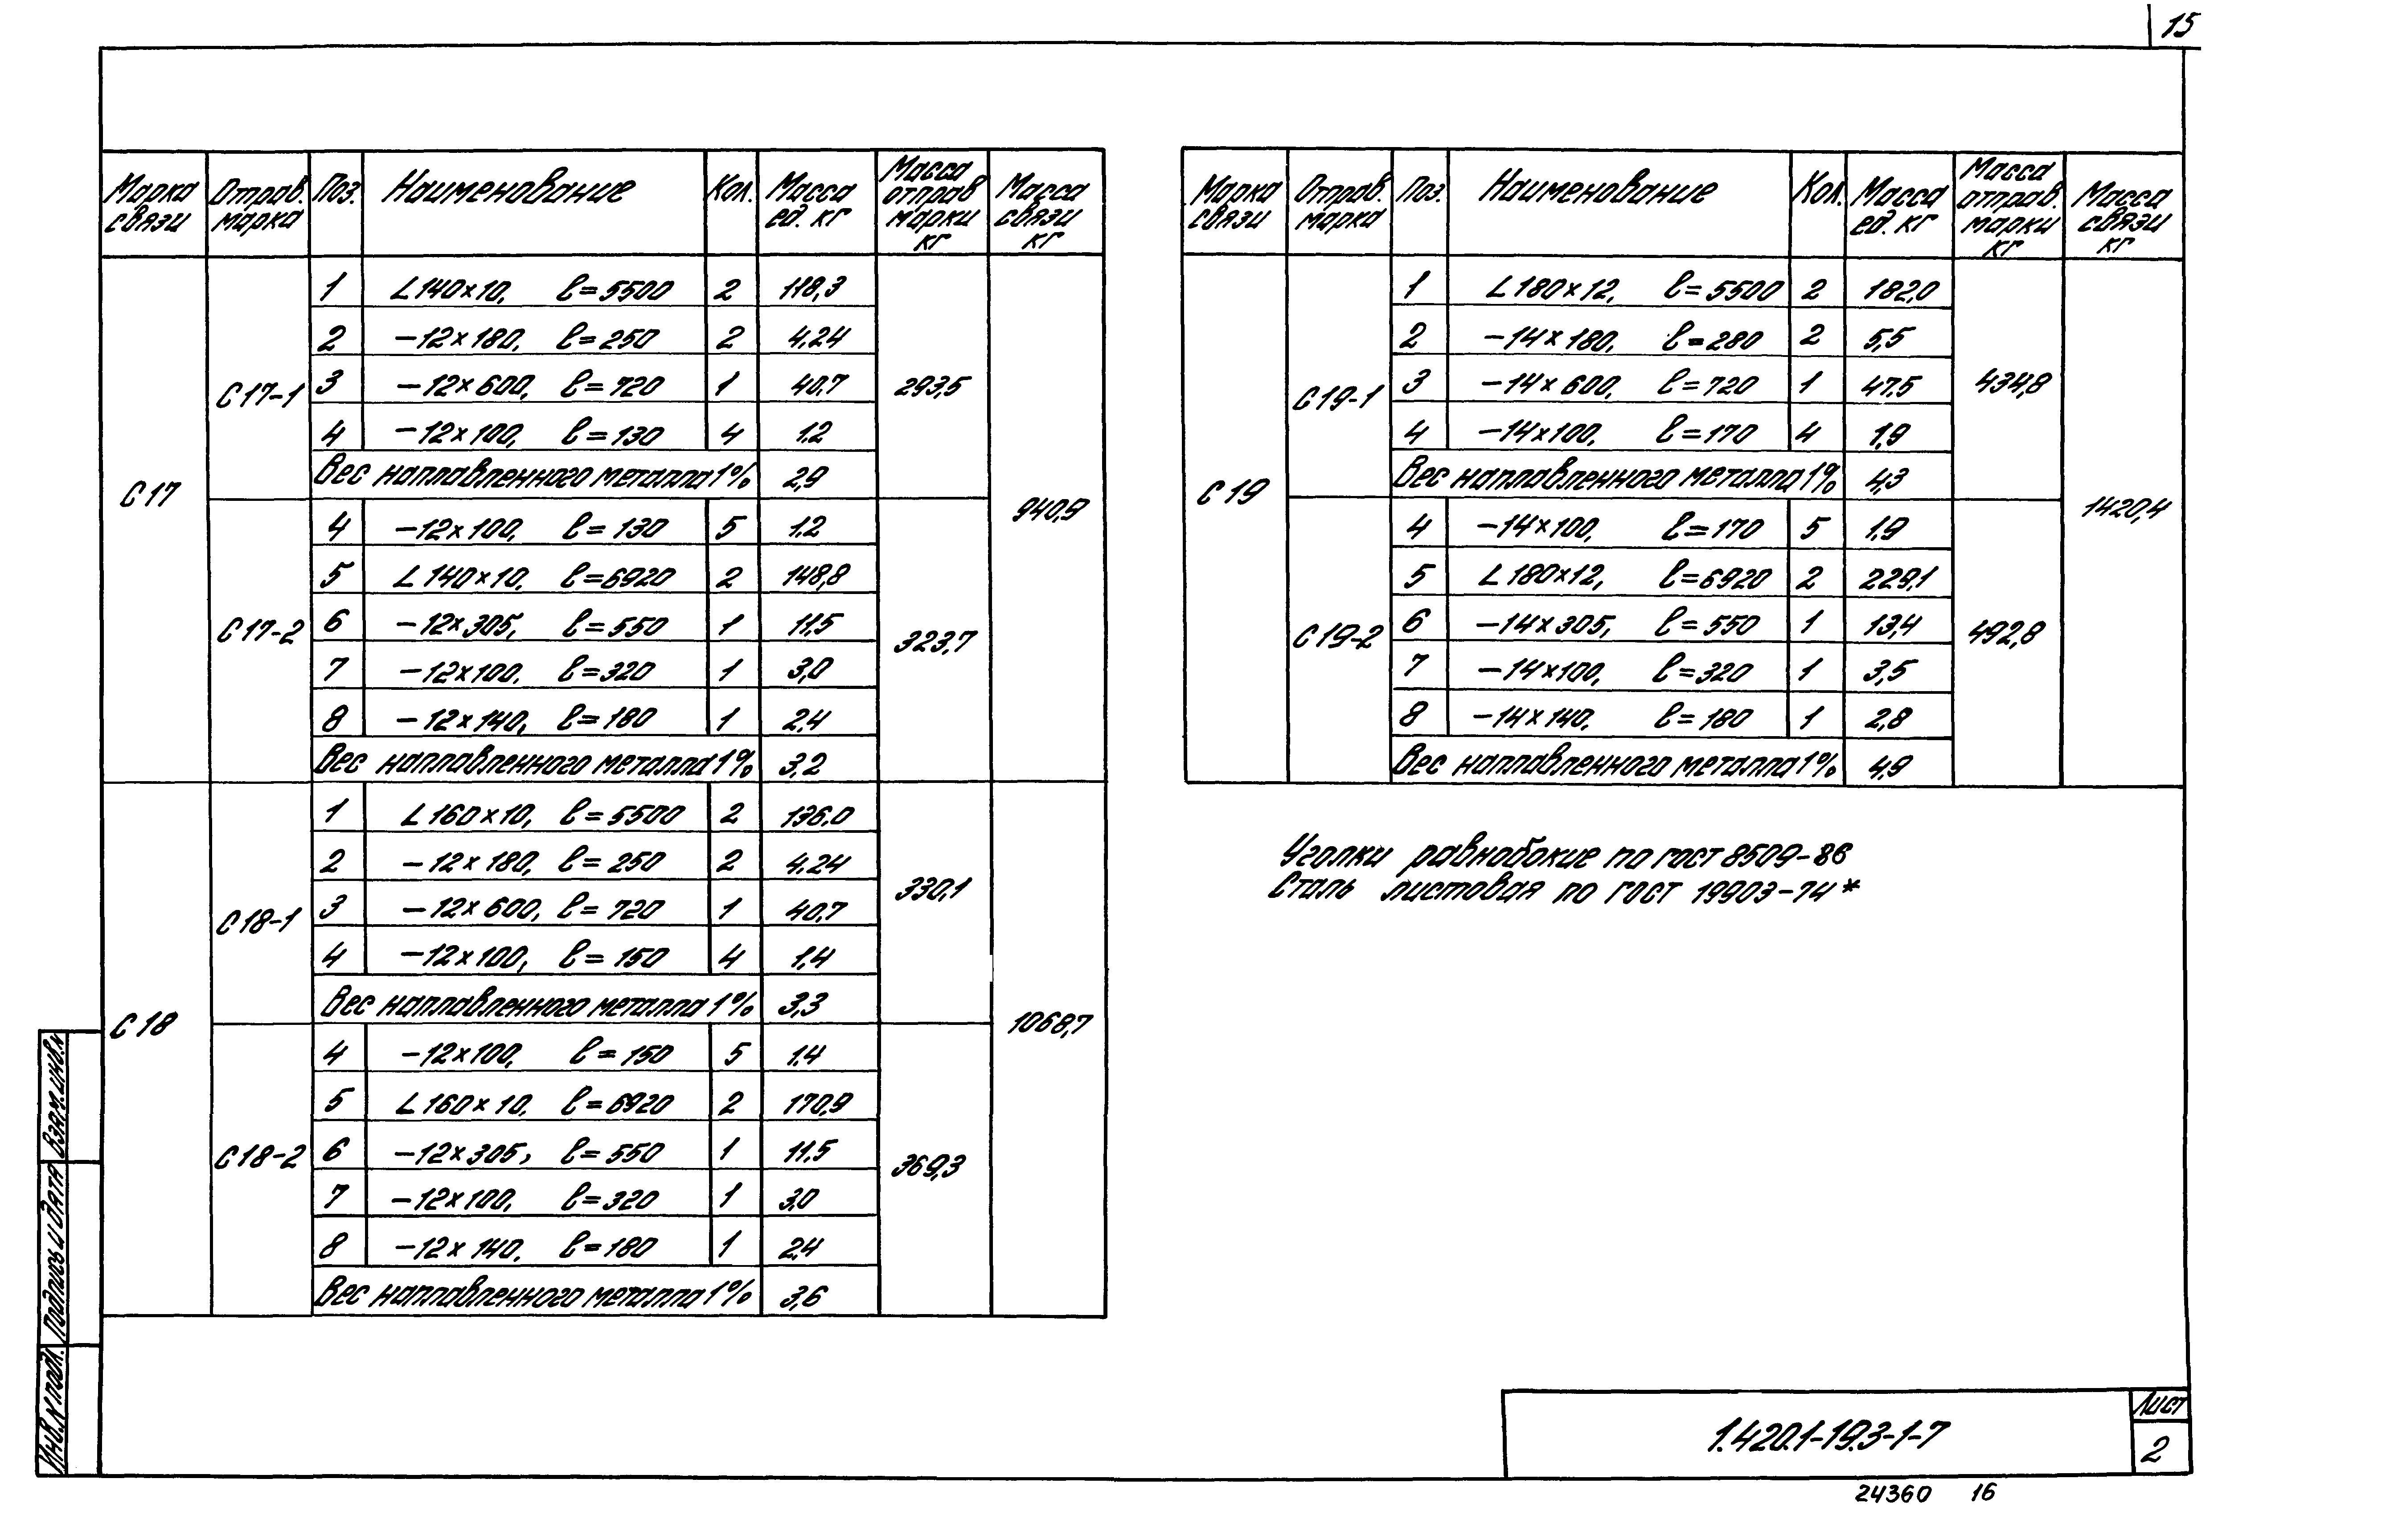 15
Марка связи | Отправ. марка | Поз. | Наименование | Кол. | Масса ед. кг | Масса отправ марки кг | Масса связи кг
С17 | С17-1 | 1 | ∟140×10, ℓ=5500 | 2 | 118,3 | 293,5 | 940,9
2 | −12×180, ℓ=250 | 2 | 4,24
3 | −12×600, ℓ=720 | 1 | 40,7
4 | −12×100, ℓ=130 | 4 | 1,2
Вес наплавленного металла 1% | 2,9
С17-2 | 4 | −12×100, ℓ=130 | 5 | 1,2 | 323,7
5 | ∟140×10, ℓ=6920 | 2 | 148,8
6 | −12×305, ℓ=550 | 1 | 11,5
7 | −12×100, ℓ=320 | 1 | 3,0
8 | −12×140, ℓ=180 | 1 | 2,4
Вес наплавленного металла 1% | 3,2
С18 | С18-1 | 1 | ∟160×10, ℓ=5500 | 2 | 136,0 | 330,1 | 1068,7
2 | −12×180, ℓ=250 | 2 | 4,24
3 | −12×600, ℓ=720 | 1 | 40,7
4 | −12×100, ℓ=150 | 4 | 1,4
Вес наплавленного металла 1% | 3,3
С18-2 | 4 | −12×100, ℓ=150 | 5 | 1,4 | 369,3
5 | ∟160×10, ℓ=6920 | 2 | 170,9
6 | −12×305, ℓ=550 | 1 | 11,5
7 | −12×100, ℓ=320 | 1 | 3,0
8 | −12×140, ℓ=180 | 1 | 2,4
Вес наплавленного металла 1% | 3,6
Марка связи | Отправ. марка | Поз. | Наименование | Кол. | Масса ед. кг | Масса отправ. марки кг | Масса связи кг
С19 | С19-1 | 1 | ∟180×12, ℓ=5500 | 2 | 182,0 | 434,8 | 1420,4
2 | −14×180, ℓ=280 | 2 | 5,5
3 | −14×600, ℓ=720 | 1 | 47,5
4 | −14×100, ℓ=170 | 4 | 1,9
Вес наплавленного металла 1% | 4,3
С19-2 | 4 | −14×100, ℓ=170 | 5 | 1,9 | 492,8
5 | ∟180×12, ℓ=6920 | 2 | 229,1
6 | −14×305, ℓ=550 | 1 | 13,4
7 | −14×100, ℓ=320 | 1 | 3,5
8 | −14×140, ℓ=180 | 1 | 2,8
Вес наплавленного металла 1% | 4,9
Уголки равнобокие по гост 8509-86
Сталь листовая по ГОСТ 19903-74*
Взам. инв. №
Подпись и дата
Инв. № подл.
1.420.1-19.3-1-7
Лист
2
24360 16